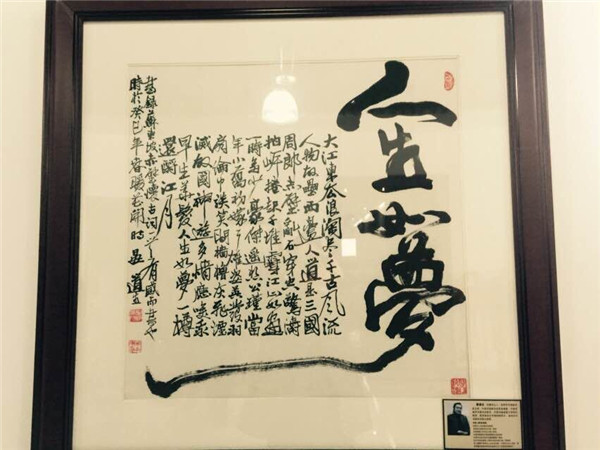 人生如夢
大江東去浪淘盡千古風流
人物故壘西邊人道是三國
周郎赤壁亂石穿空驚濤
拍岸捲起千堆雪江山如畫
一時多少豪傑遙想公瑾當
年小喬初嫁了雄姿英發羽
扇綸巾談笑間檣櫓灰飛湮
滅故國神遊多情應笑我
早生華髮人生如夢一樽
還酹江月
錄蘇東坡赤壁懷古詞一首有感而書也
時於癸巳年春暖花開時